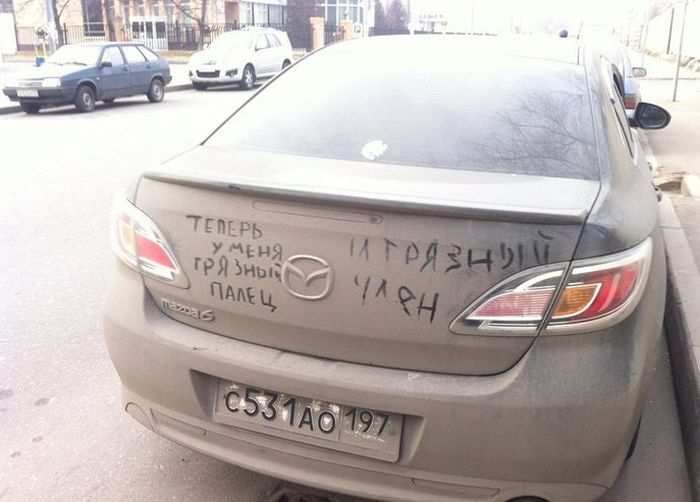 ТЕПЕРЬ
У МЕНЯ
ГРЯЗНЫЙ
ПАЛЕЦ
И ГРЯЗНЫЙ
ЧЛЕН
mazda6
С531АО 197